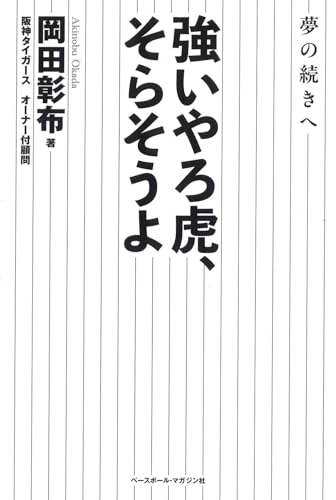 夢の続きへ
強いやろ虎、
そらそうよ
Akinobu Okada
岡田彰布 著
阪神タイガース オーナー付顧問
ベースボール・マガジン社